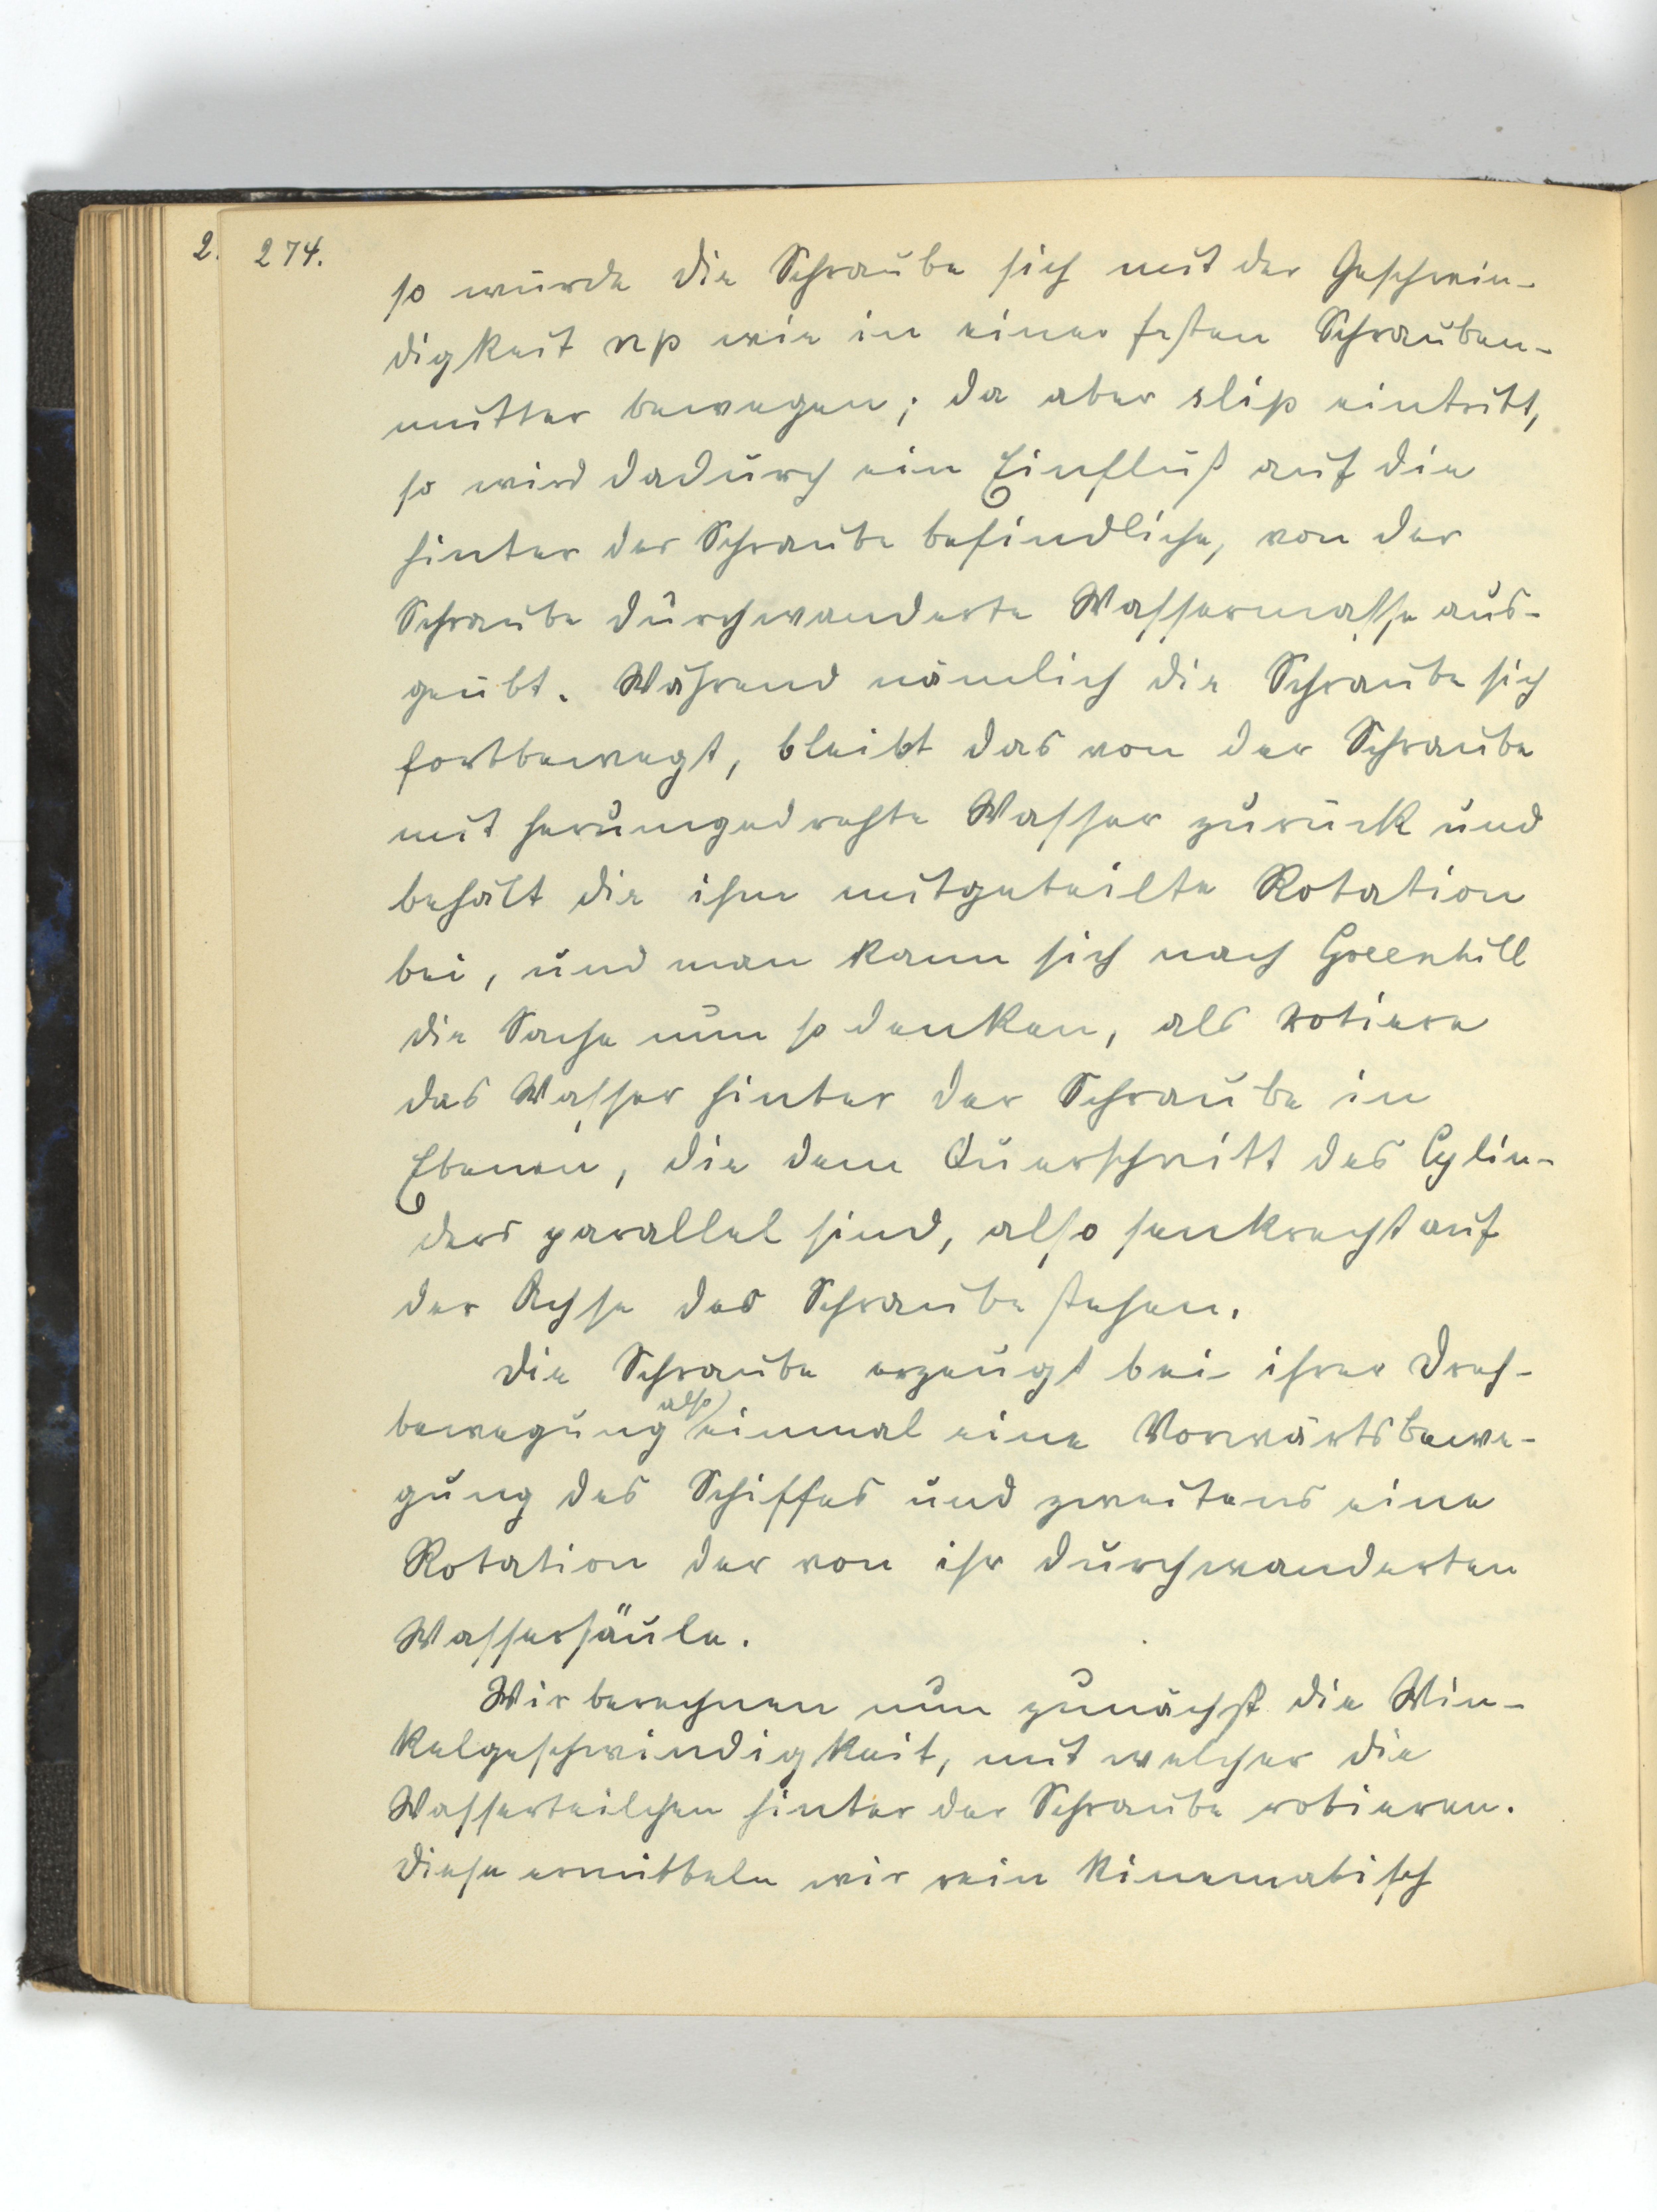 2. 274.
so würde die Schraube sich mit der Geschwin-
digkeit np wie in einer festen Schrauben-
mutter bewegen; da aber slip eintritt,
so wird dadurch ein Einfluß auf die
hinter der Schraube befindliche, von der
Schraube durchwanderte Wassermasse aus-
geübt. Während nämlich die Schraube sich
fortbewegt, bleibt das von der Schraube
mit herumgedrehte Wasser zurück und
behält die ihm mitgeteilte Rotation
bei, und man kann sich nach Greenhill
die Sache nun so denken, als rotiere
das Wasser hinter der Schraube in
Ebenen, die dem Querschnitt des Cylin-
ders parallel sind, also senkrecht auf
der Achse der Schraube stehen.
Die Schraube erzeugt bei ihrer Dreh-
bewegung also einmal eine Vorwärtsbewe-
gung des Schiffes und zweitens eine
Rotation der von ihr durchwanderten
Wassersäule.
Wir berechnen nun zunächst die Win-
kelgeschwindigkeit, mit welcher die
Wasserteilchen hinter der Schraube rotieren.
Diese ermitteln wir rein kinematisch